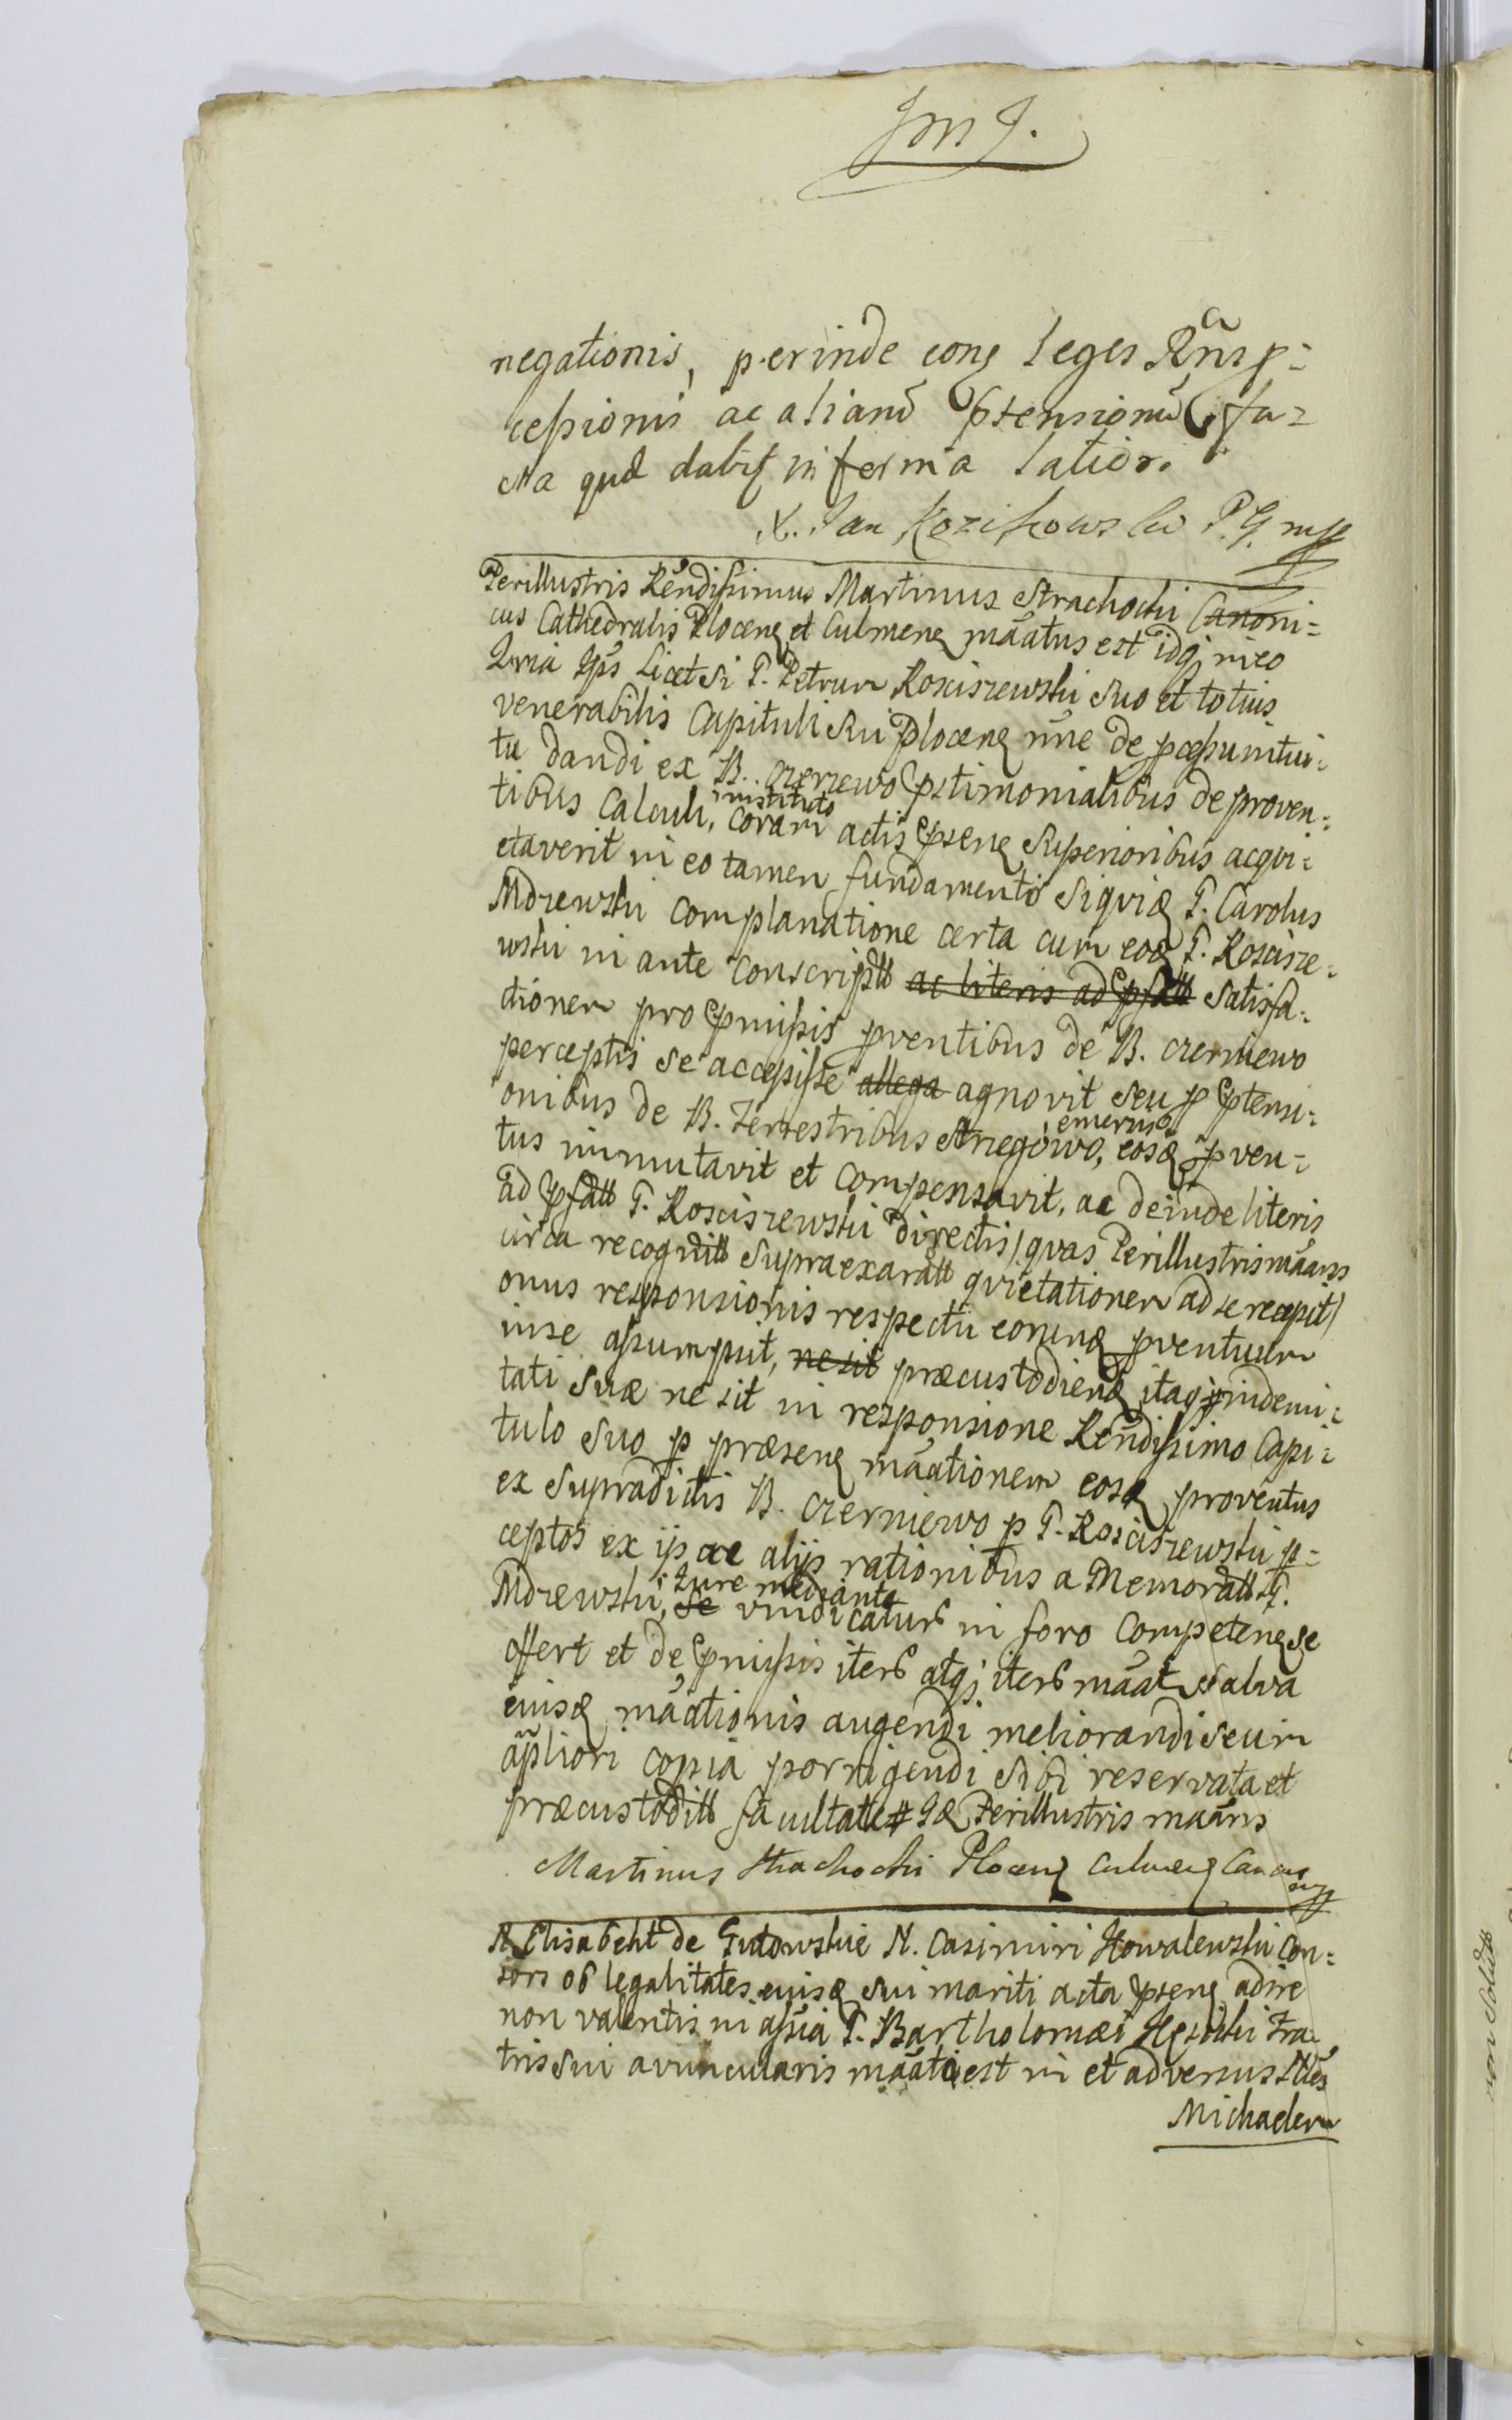 negationis, perinde cong leges Rñs p=
cessionis ac aliarũ ptensionũ, fa=
cta quæ dabit in forma latior.
X. Jan Kozikowski P. G. mp
Perillustris Rendissimus Martinus Strachocki Canoni=
cus Cathedralis Plocenȩ et Culmenȩ mãatus est idq; in eo
Quia Ips Licet Si P. Petrum Rosciszewski Suo et totius
venerabilis Capituli Sui Plocenȩ nñe de pcessu intui=
tu dandi ex B. czerniewo ptimonialibus de proven=
tibus Calculi, instituto coram actis psenȩ Superioribus acqui=
etaverit in eo tamen fundamento Siquidȩ P. Carolus
Mdzewski complanatione certa cum eodȩ P. Roscisze=
wski in ante conscriptt ac literis ad psatt Satisfa=
ctionem pro pmissis pventibus de B. czerniewo
perceptis se accepisse allega agnovit Seu p ptensi=
onibus de B. Terrestribus Strzegowo, emerusȩ eosȩ pven=
tus immutavit et compensavit, ac deinde literis
ad psatt P. Rosciszewski directis / quas Perillustris mãans
circa recognitt Supra exaratt quietationem ad se recepit /
onus responsionis respectu eorundȩ pventuum
in se assumpsit, ne sit præcustodienȩ itaq; indemni=
tati Suæ ne sit in responsione Rendissimo Capi=
tulo Suo p præsenȩ mãationem eosdȩ proventus
ex Supradictis B. czerniewo p P. Rosciszewski p=
ceptos ex ijs ac alijs rationibus a Memoratt P.
Mdzewski, Jure mediante se vindicaturũ in foro Competenȩ se
offert et de pmissis iterũ atq; iterũ mãat Salva
eiusdȩ mãationis augendi meliorandi seu in
ãpliori copia porrigendi Sibi reservata et
præcustoditt facultate # Idȩ Perillustris mãans
Martinus Strachocki Plocenȩ Culmenȩ Canonȩ mp
N Elisabeht de Gutowskie N. Casimiri Kowalewski Con=
sors ob legalitates eiusdȩ Sui mariti acta psenȩ adire
non valentis in assña P. Bartholomæi Fra=
tris Sui avuncularis mãata est in et adversus Nles
Michaelem
non Solutt